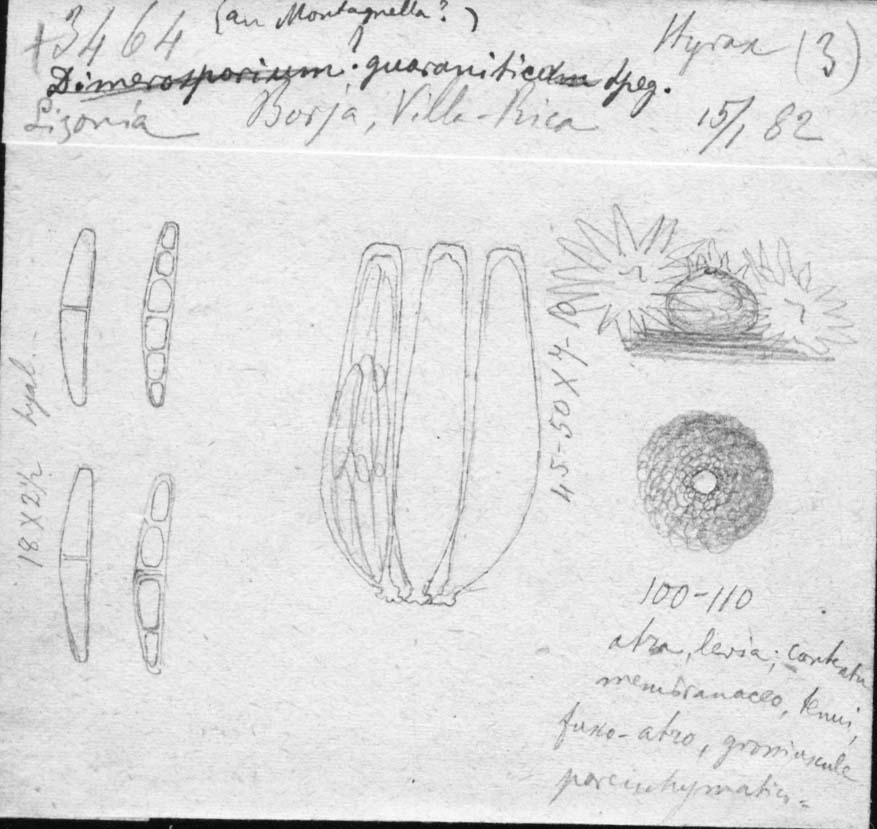 (an Montagnella?)
+3464
Hyrax (3)
Dimerosporium? guaraniticum Speg.
Lizonia Borja, Villa-Rica 15/1 82
18 X 2½ hyal.
45-50 X 7-10
100-110
atra, levia; contextu
membranaceo, tenui,
fusco-atro, grossiuscule
parenchymatico-